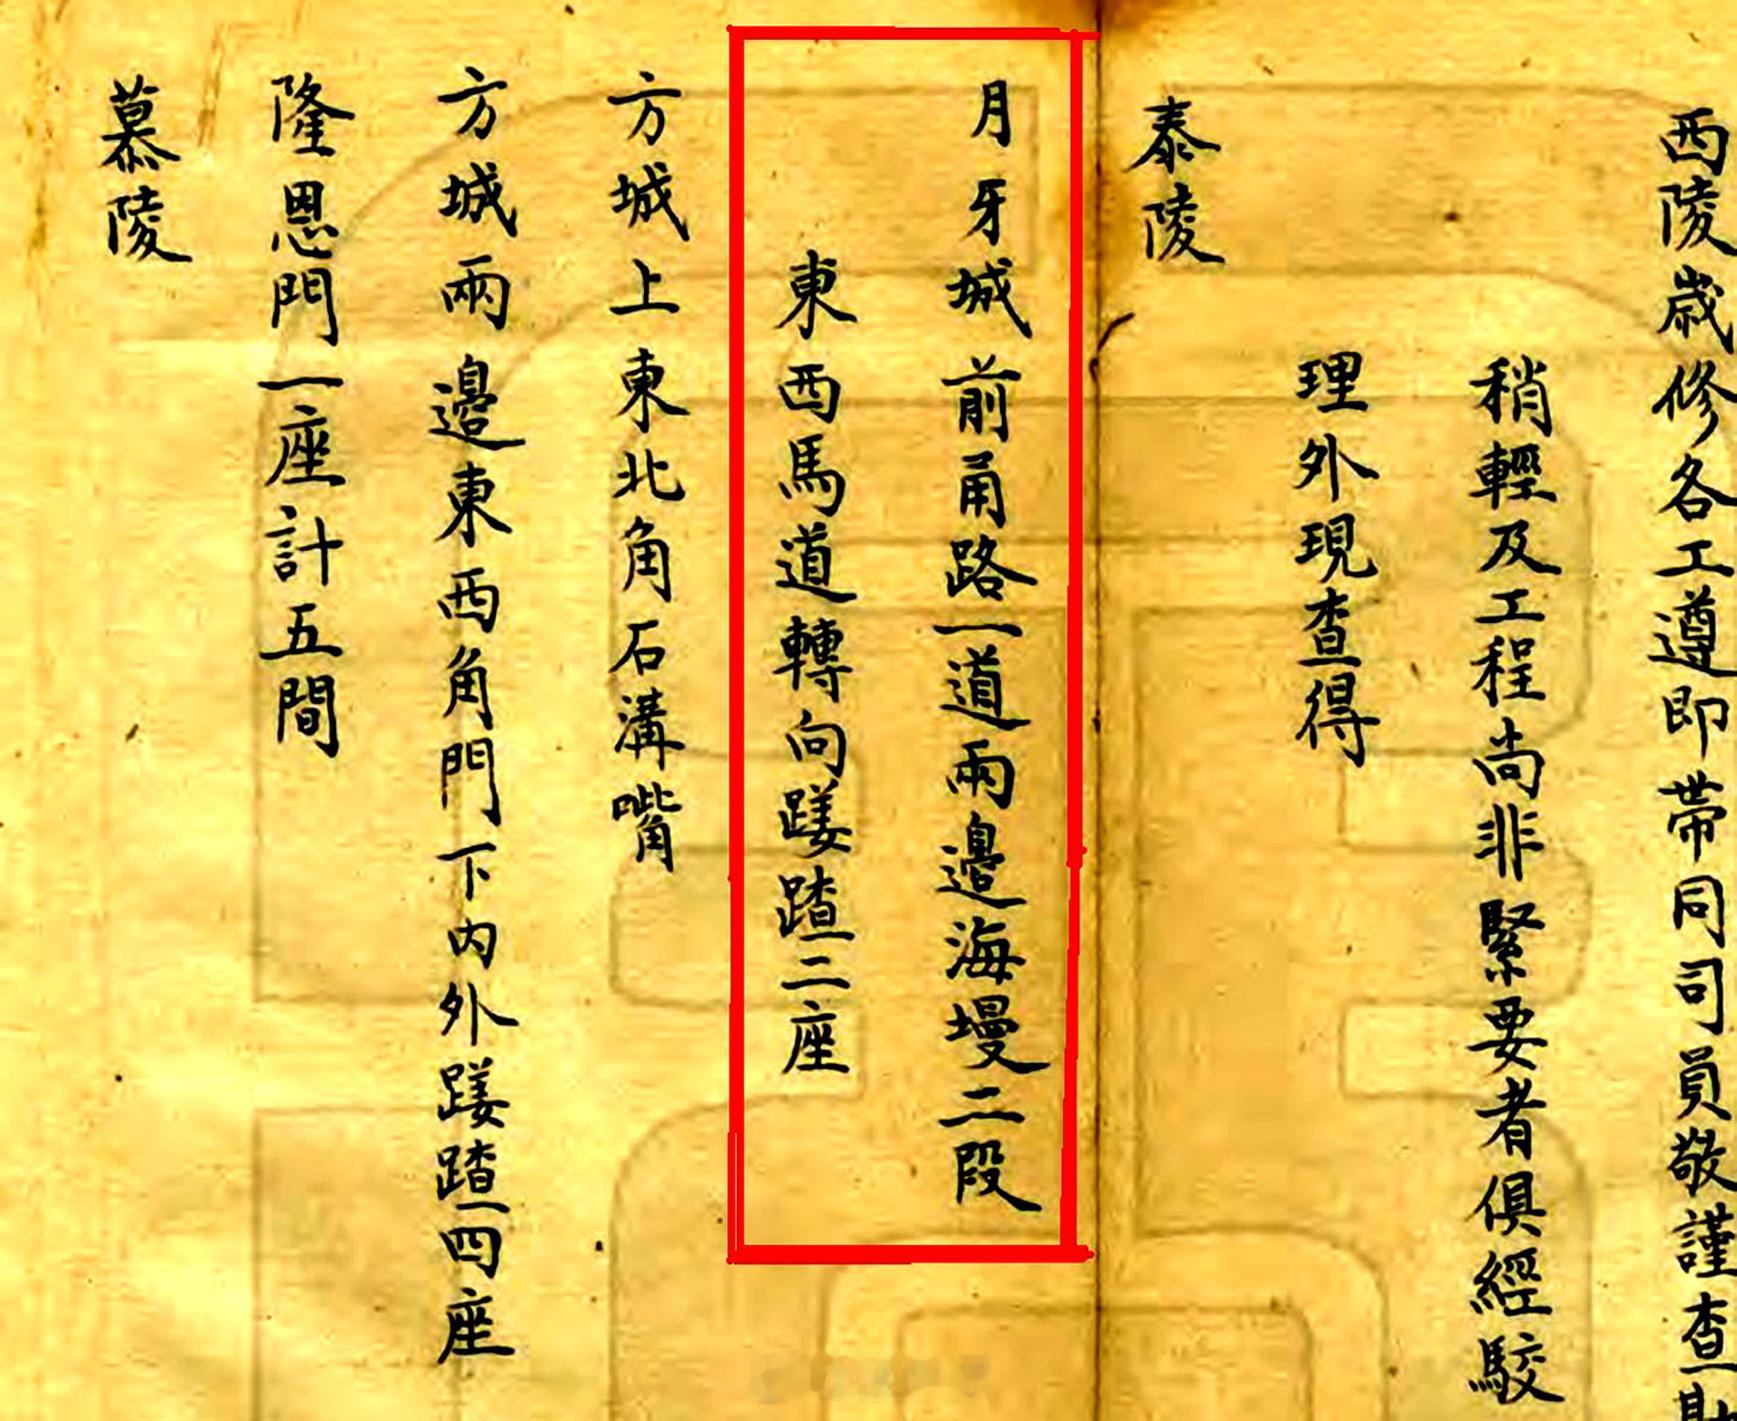 西陵歲修各工遵即帶同司員敬謹查勘
稍輕及工程尚非緊要者俱經駮
理外現查得
泰陵
月牙城前甬路一道兩邊海墁二段
東西馬道轉向蹉二座
方城上東北角石溝嘴
方城兩邊東西角門下內外蹉四座
隆恩門一座計五間
慕陵